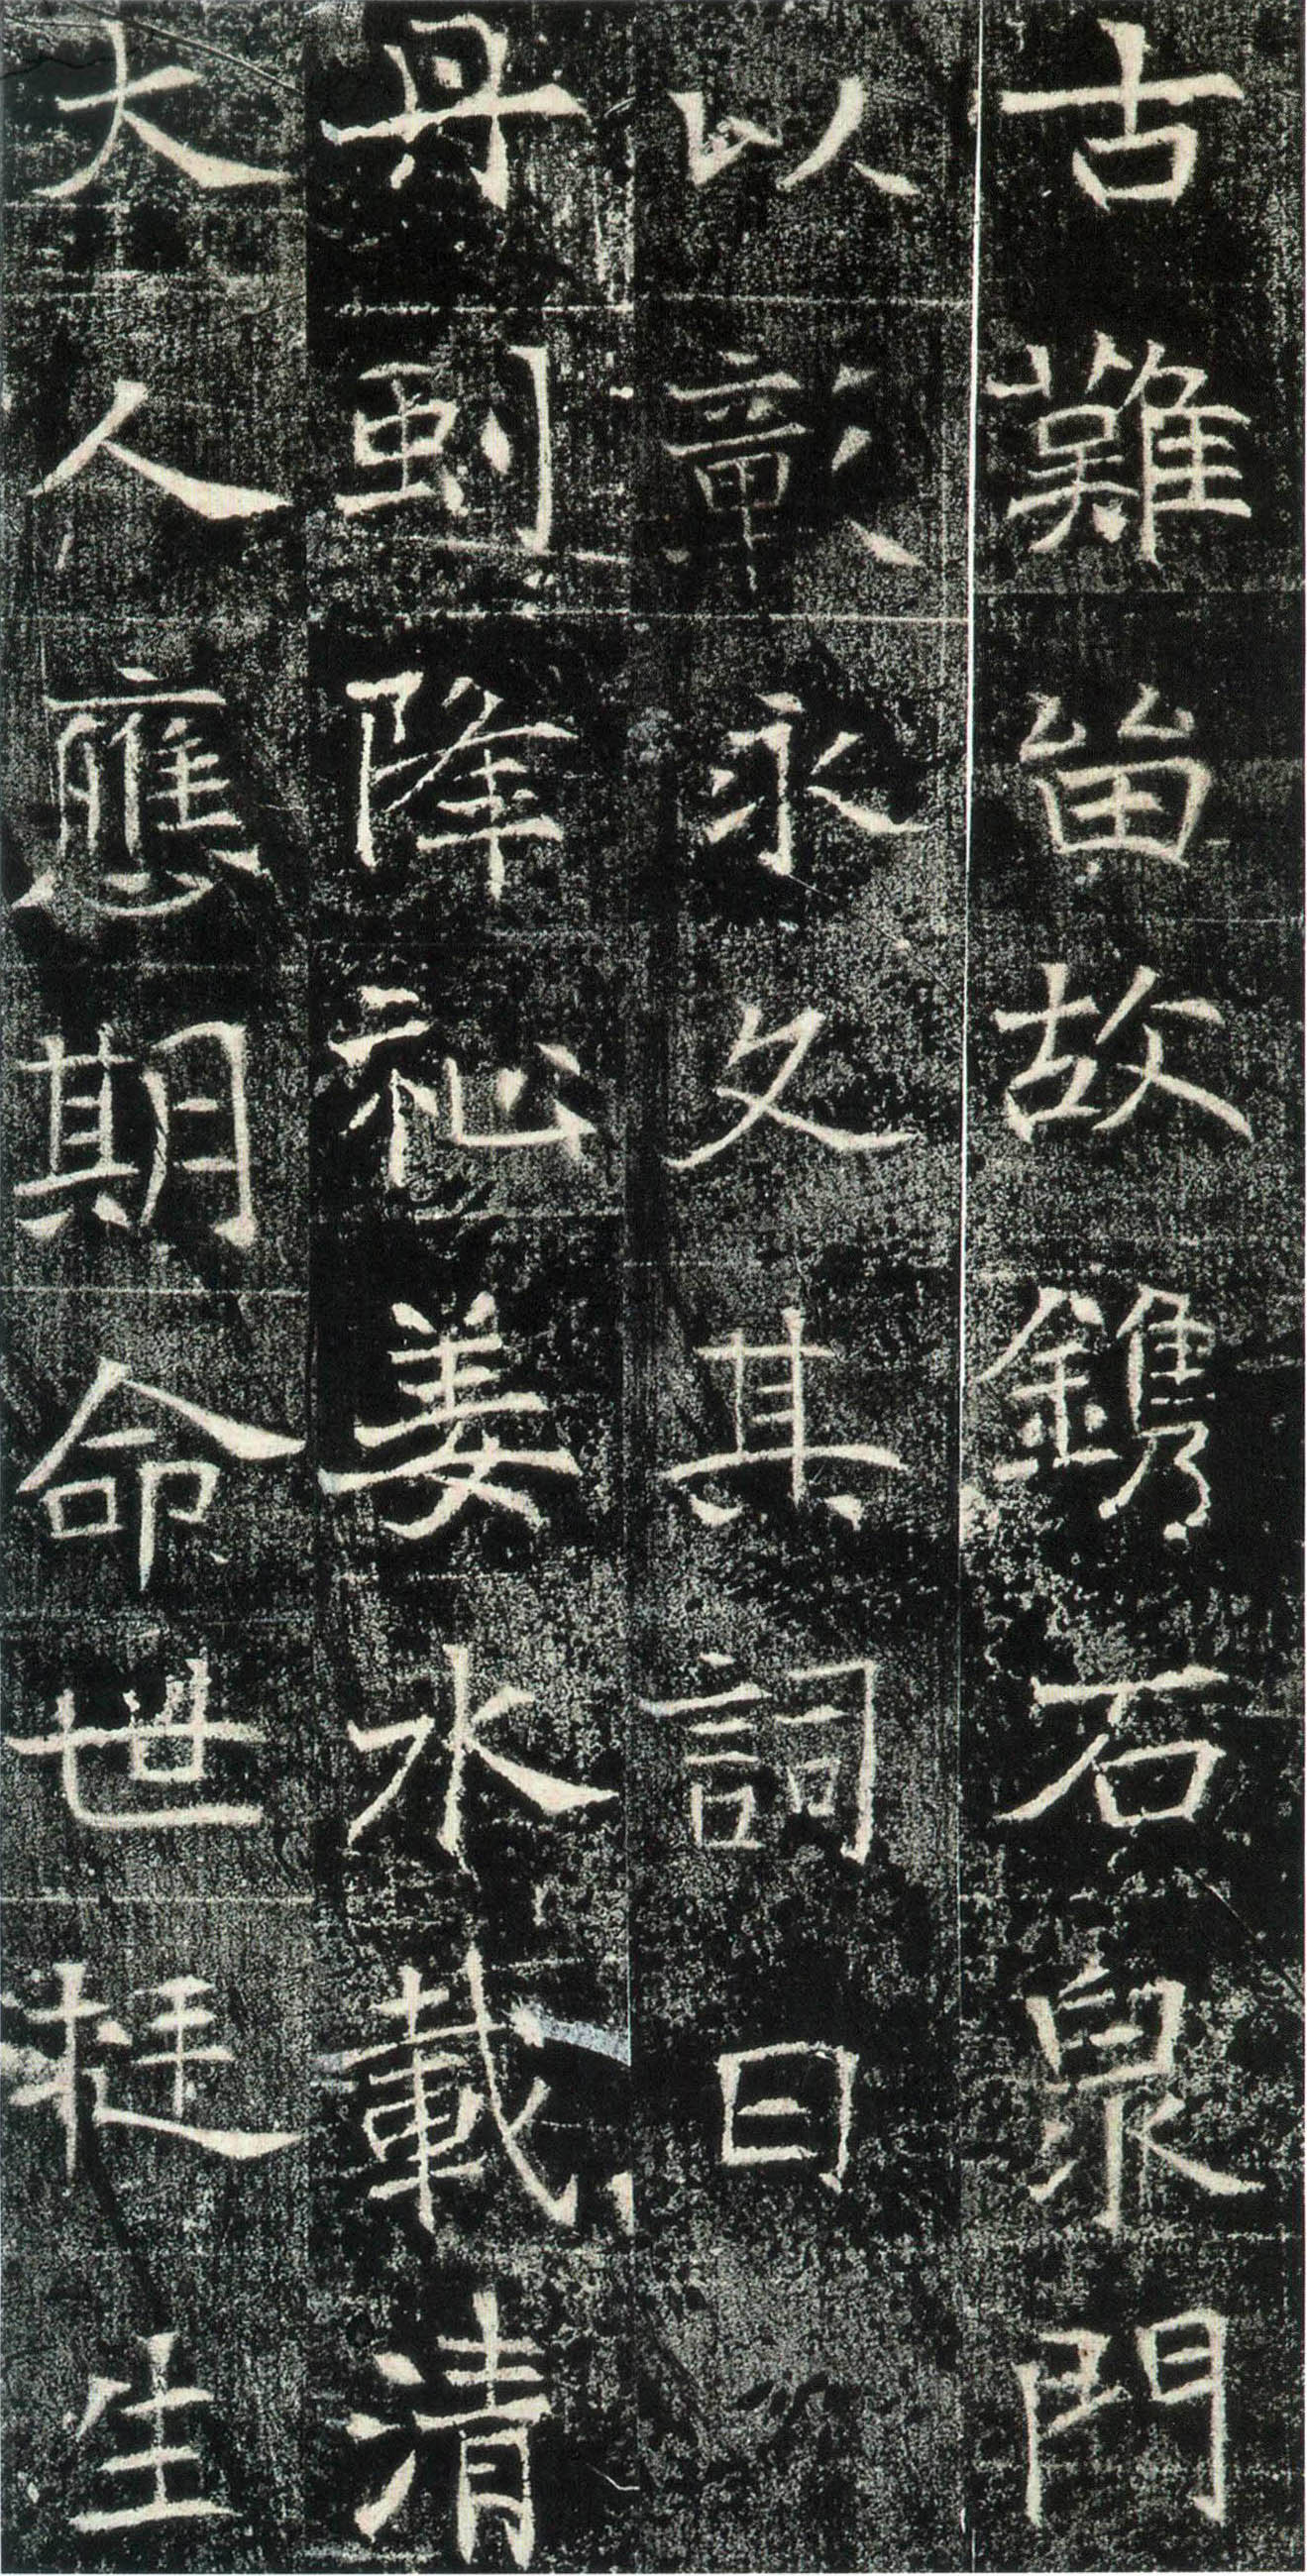 古難㽞故鐫石泉門
以彰永久其詞曰
丹降祉姜水載清
大人應期命世挺生